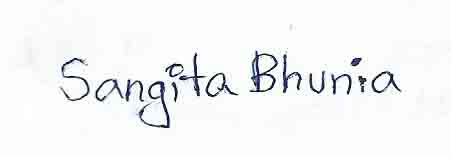 Sangita Bhunia